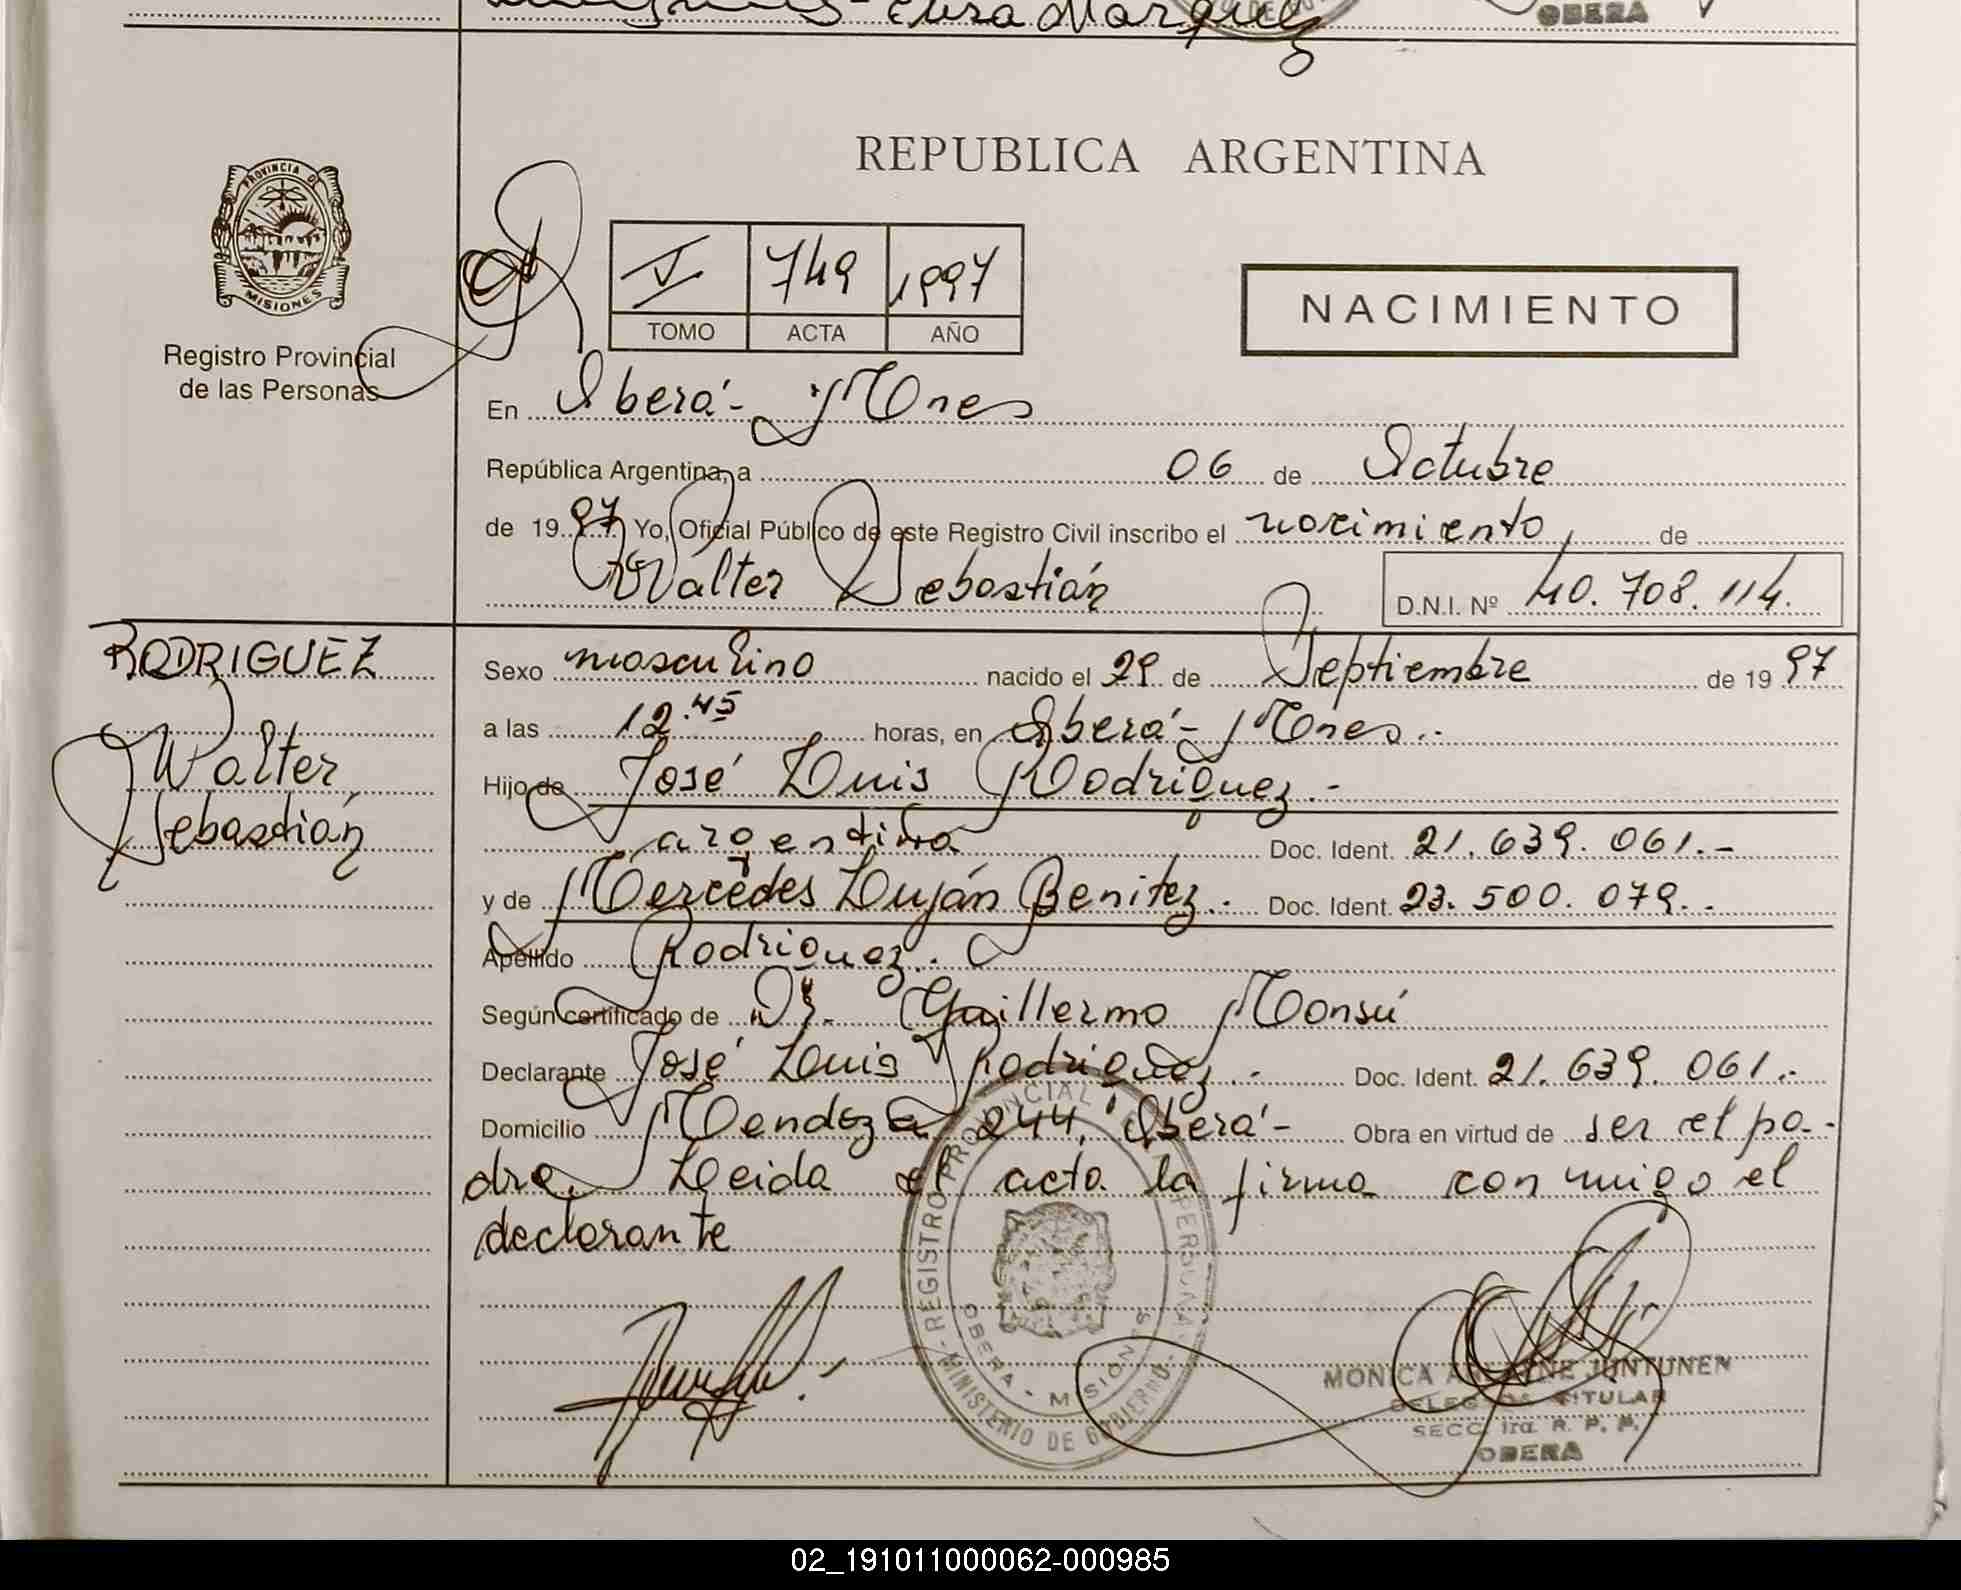 Elisa Marquez
OBERA
REPUBLICA ARGENTINA
PROVINCIA DE
MISIONES
Registro Provincial
de las Personas
V 749 1997
TOMO ACTA AÑO
NACIMIENTO
En Oberá- Mnes
República Argentina, a 06 de Octubre
de 19 97 Yo, Oficial Público de este Registro Civil inscribo el nacimiento de
Walter Sebastián D.N.I. Nº 40.708.114.
RODRIGUEZ
Walter
Sebastián
Sexo masculino nacido el 29 de Septiembre de 19 97
a las 12.45 horas, en Oberá- Mnes.-
Hijo de José Luis Rodriguez.-
argentina Doc. Ident. 21.639.061.-
y de Mercedes Luján Benitez.- Doc. Ident. 23.500.079.-
Apellido Rodriguez.
Según certificado de Dr. Guillermo Monsú
Declarante José Luis Rodriguez.- Doc. Ident. 21.639.061.-
Domicilio Mendoza 244, Oberá- Obra en virtud de ser el pa-
dre. Leida el acta la firma conmigo el
declarante
REGISTRO PROVINCIAL DE LAS PERSONAS
OBERA - MISIONES
MINISTERIO DE GOBIERNO
MONICA JUNTUNEN
DELEGADA TITULAR
SECC. 1ra. R. P. P.
OBERA
02_191011000062-000985